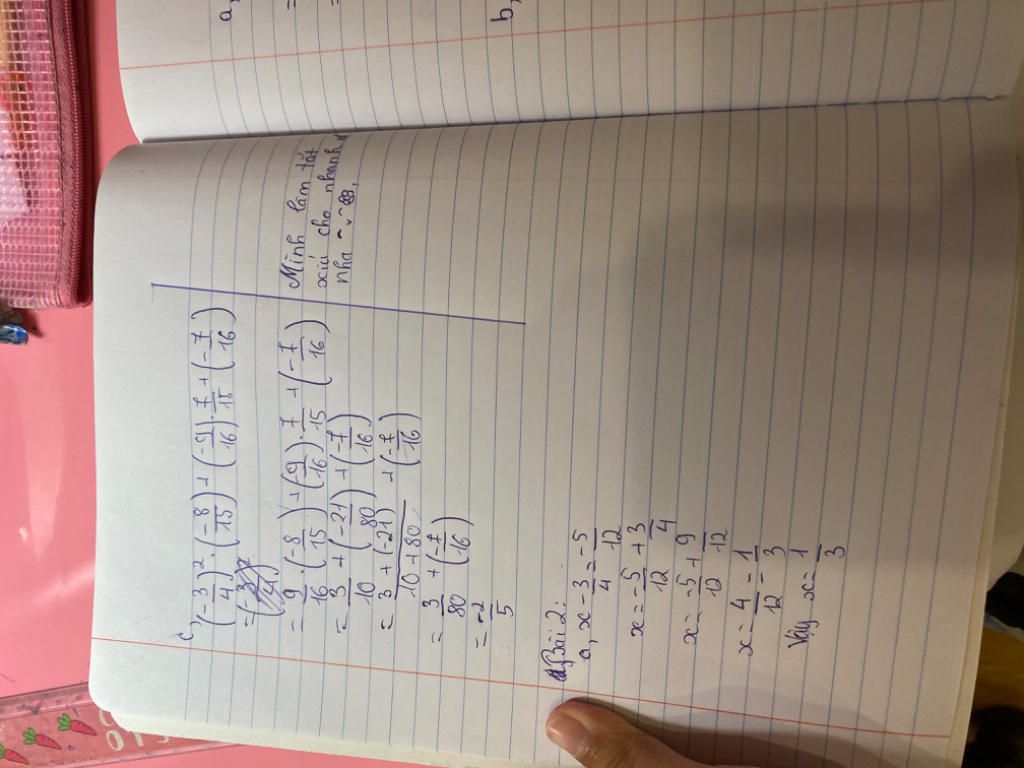 a,
=
=
b,
c,
(-3/4)² . (-8/15) + (-9/16) . 7/15 + (-7/16)
= 9/16 . (-8/15) + (9/16) . 7/15 + (-7/16)
= 3/10 + (-21/80) + (-7/16)
= 3 + (-21)/10 + 80 + (-7/16)
= 3/80 + (-7/16)
= -2/5
Mình làm tắt
xíu cho nhanh
nha ~~
Bài 2:
a, x - 3/4 = -5/12
x = -5/12 + 3/4
x = -5/12 + 9/12
x = 4/12 = 1/3
Vậy x = 1/3